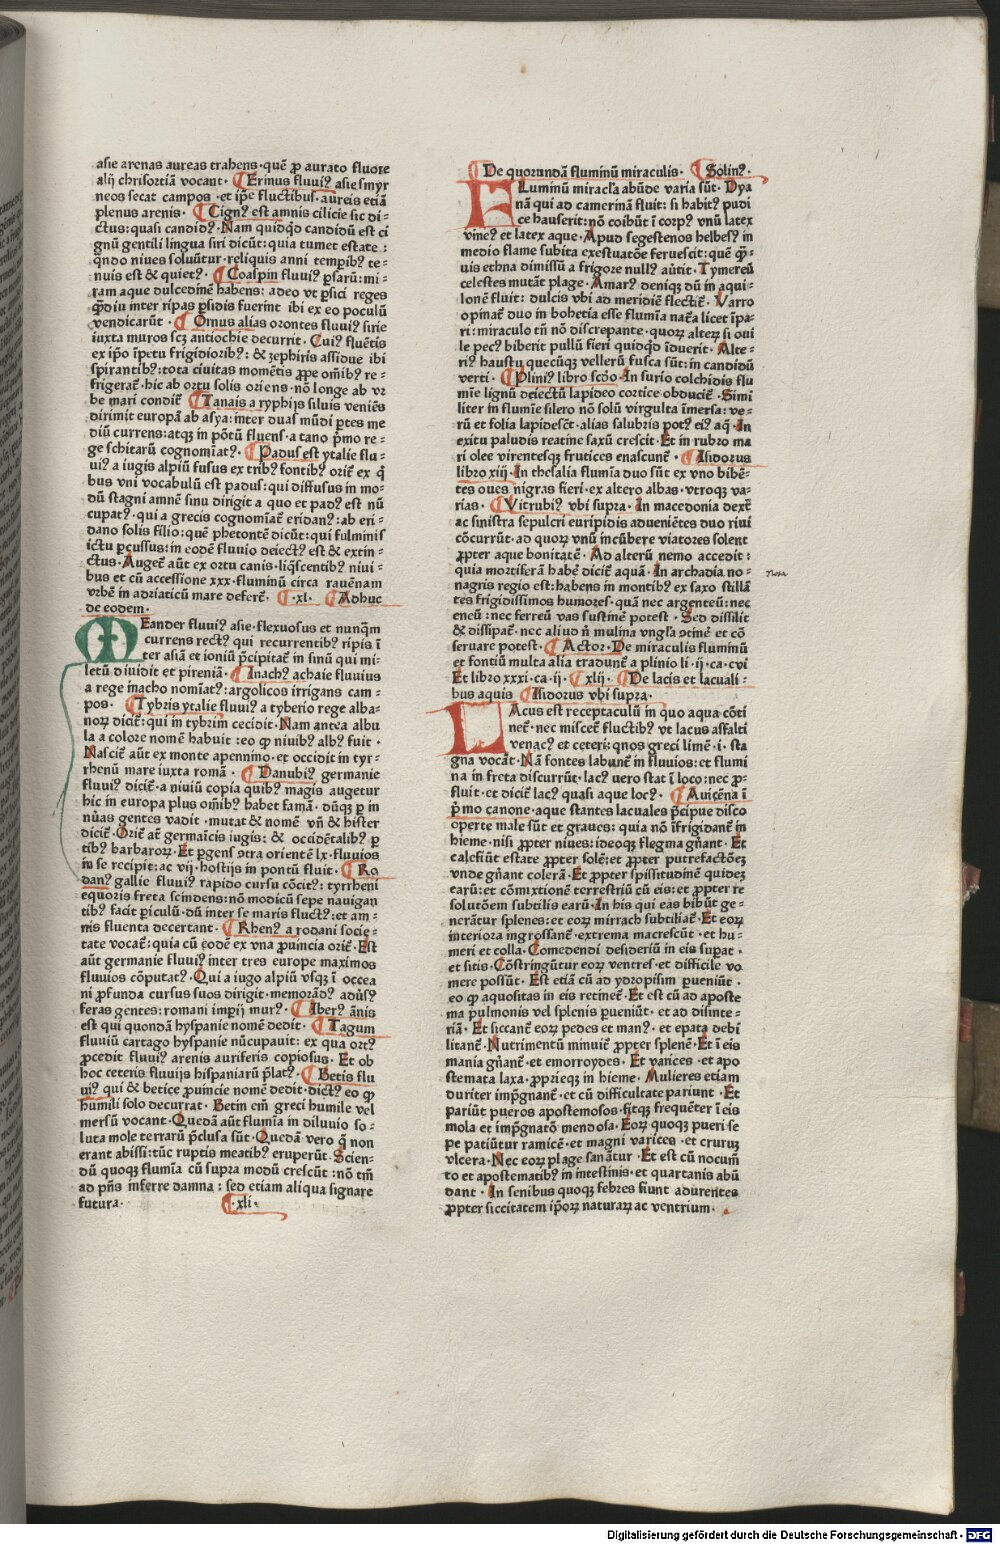 asie arenas aureas trahens·quē ꝓ aurato fluore
alij chrisortiā vocant· ¶ Ermus fluuiꝰ asie smyr
neos secat campos ·et ip̄e fluctibus·aureis etiā
plenus arenis· ¶ Cignꝰ est amnis cilicie sic di⸗
ctus:quasi candidꝰ·Nam quidqd candidū est ci
gnū gentili lingua siri dicūt:quia tumet estate:
qn̄do niues soluūtur·reliquis anni tempibꝰ te⸗
nuis est & quietꝰ· ¶ Coaspin fluuiꝰ psarū:mi⸗
ram aque dulcedinē habens: adeo vt psici reges
qͣ̄diu inter ripas psidis fuerint ibi ex eo poculū
vendicarūt· ¶ Ornus alias orontes fluuiꝰ sirie
iuxta muros scꝫ antiochie decurrit· Cuiꝰ fluētis
ex ip̄o īpetu frigidioribꝰ: & zephiris assidue ibi
spirantibꝰ:tota ciuitas momētis ꝓpe om̄ibꝰ re⸗
frigerat̄·hic ab ortu solis oriens·nō longe ab vr
be mari condit̄ ¶ Tanais a ryphijs siluis veniēs
dirimit europā ab asya:inter duas mūdi ptes me
diū currens:atqꝫ in pōtū fluens·a tano p̄mo re⸗
ge schitarū cognomīat̄· ¶ Padus est ytalie flu⸗
uiꝰ a iugis alpiū fusus ex tribꝰ fontibꝰ orit̄ ex q̄
bus vni vocabulū est padus:qui diffusus in mo⸗
dū stagni amnē sinu dirigit a quo et padꝰ est nū
cupat̄·qui a grecis cognomīat̄ eridanꝰ:ab eri⸗
dano solis filio:quē phetontē dicūt:qui fulminis
ictu pcussus:in eodē fluuio deiectꝰ est & extin⸗
ctus·Auget̄ aūt ex ortu canis·liq̄scentibꝰ niui⸗
bus et cū accessione xxx·fluminū circa rauēnam
vrbē in adriaticū mare defert̄· ¶·xl· ¶ Adhuc
de eodem·
MEander fluuiꝰ asie·flexuosus et nunq̄m
currens rectꝰ qui recurrentibꝰ ripis ī
ter asiā et ioniū p̄cipitat̄ in sinū qui mi⸗
letū diuidit et pireniā· ¶ Inachꝰ achaie fluuius
a rege inacho nomīat̄:argolicos irrigans cam⸗
pos· ¶ Tybris ytalie fluuiꝰ a tyberio rege alba⸗
norꝫ dicit̄:qui in tybrim cecidit·Nam antea albu
la a colore nomē habuit :eo ꝙ niuibꝰ albꝰ fuit·
Nascit̄ aūt ex monte apennino·et occidit in tyr⸗
rhenū mare iuxta romā· ¶ Danubiꝰ germanie
fluuiꝰ dicit̄·a niuiū copia quibꝰ magis augetur
hic in europa plus om̄ibꝰ habet famā·dūqꝫ p in
nūas gentes vadit ·mutat & nomē vn̄ & hister
dicit̄·Orit̄ at̄ germaīcis iugis: & occidētalibꝰ p
tibꝰ barbarorꝫ·Et pgens ↄtra orientē lx·fluuios
in se recipit:ac vij·hostijs in pontū fluit· ¶ Ro
danꝰ gallie fluuiꝰ rapido cursu cōcitꝰ:tyrrheni
equoris freta scindens:nō modicū sepe nauigan
tibꝰ facit piculū·dū inter se maris fluctꝰ:et am⸗
nis fluenta decertant· ¶ Rhenꝰ a rodani socie⸗
tate vocat̄:quia cū eodē ex vna puincia orit̄·Est
aūt germanie fluuiꝰ inter tres europe maximos
fluuios cōputatꝰ·Qui a iugo alpiū vsqꝫ ī occea
ni ꝓfunda cursus suos dirigit·memorādꝰ adusꝰ
feras gentes:romani impij murꝰ· ¶ Iberꝰ ānis
est qui quondā hyspanie nomē dedit· ¶ Tagum
fluuiū cartago hyspanie nūcupauit: ex qua ortꝰ
ꝓcedit fluuiꝰ arenis auriferis copiosus· Et ob
hoc ceteris fluuijs hispaniarū p̄lat̄· ¶ Betis flu
uiꝰ qui & betice ꝓuincie nomē dedit·dictꝰ eo ꝙ
humili solo decurrat·Betin em̄ greci humile vel
mersū vocant·Quedā aūt flumīa in diluuio so⸗
luta mole terrarū p̄clusa sūt·Quedā vero q̄ non
erant abissi:tūc ruptis meatibꝰ eruperūt·Scien⸗
dū quoqꝫ flumīa cū supra modū crescūt :nō tm̄
ad pn̄s inferre damna : sed etiam aliqua signare
futura· ¶·xli·
¶ De quorundā fluminū miraculis· ¶ Solinꝰ·
FLuminū miracl̄a abūde varia sūt·Dya
nā qui ad camerinā fluit: si habitꝰ pudi
ce hauserit:nō coibūt ī corpꝰ vnū latex
vineꝰ et latex aque·Apud segestenos helbesꝰ in
medio flame subita exestuatōe feruescit:quē q̄⸗
uis ethna dimissū a frigore nullꝰ aūtit·Tymereū
celestes mutāt plage·Amarꝰ deniqꝫ dū in aqui⸗
lonē fluit: dulcis vbi ad meridiē flectit̄· Varro
opinat̄ duo in bohetia esse flumīa nat̄a licet īpa⸗
ri:miraculo tn̄ nō discrepante·quorꝫ alterꝫ si oui
le pecꝰ biberit pullū fieri quidqd īduerit·Alte⸗
riꝰ haustu quecūqꝫ vellerū fusca sūt:in candidū
verti· ¶ Pliniꝰ libro scd̄o·In surio colchidis flu
mīe lignū deiectū lapideo cortice obducit̄·Simi
liter in flumīe silero nō solū virgulta īmersa:ve⸗
rū et folia lapidesct̄·alias salubris potꝰ eiꝰ aq̄·In
exitu paludis reatine saxū crescit·Et in rubro ma
ri olee virentesqꝫ frutices enascunt̄· ¶ Isidorus
libro xiij·In thesalia flumīa duo sūt ex vno bibē⸗
tes oues nigras fieri·ex altero albas·vtroqꝫ va⸗
rias· ¶ Vitrubiꝰ vbi supra·In macedonia dext̄
ac sinistra sepulcri euripidis adueniētes duo riui
cōcurrūt·ad quorꝫ vnū incūbere viatores solent
ꝓpter aque bonitatē· Ad alterū nemo accedit:
quia mortiferā habē dicit̄ aquā·In archadia no⸗
nagris regio est:habens in montibꝰ ex saxo stillā
tes frigidissimos humores·quā nec argenteū:nec
eneū:nec ferreū vas sustinē potest·Sed dissilit
& dissipat̄·nec aliud n̄ mulina vngl̄a ↄtinē et cō
seruare potest· ¶ Actor·De miraculis fluminū
et fontiū multa alia tradunt̄ a plinio li·ij·ca·cvi
Et libro xxxi·ca·ij· ¶ xlij· ¶ De lacis et lacuali⸗
bus aquis ¶ Isidorus vbi supra·
LAcus est receptaculū in quo aqua cōti
net̄·nec miscet̄ fluctibꝰ vt lacus asfalti
venacꝰ et ceteri:qnos greci limē·i·sta
gna vocāt·Nā fontes labunt̄ in fluuios:et flumi
na in freta discurrūt·lacꝰ uero stat ī loco:nec ꝓ⸗
fluit·et dicit̄ lacꝰ quasi aque locꝰ· ¶ Auicēna ī
p̄mo canone·aque stantes lacuales p̄cipue disco
operte male sūt et graues: quia nō īfrigidant̄ in
hieme·nisi ꝓpter niues:ideoqꝫ flegma gn̄ant·Et
calefiūt estate ꝓpter solē:et ꝓpter putrefactōeꝫ
vnde gn̄ant colerā·Et ꝓpter spissitudinē quideꝫ
earū:et cōmixtionē terrestriū cū eis:et ꝓpter re
solutōem subtilis earū·In his qui eas bibūt ge⸗
nerātur splenes:et eorꝫ mirrach subtiliat̄·Et eorꝫ
interiora ingrossant̄·extrema macrescūt·et hu⸗
meri et colla·Comedendi desideriū in eis supat·
et sitis·Cōstringūtur eorꝫ ventres·et difficile vo
mere possūt·Est etiā cū ad ydropisim pueniūt·
eo ꝙ aquositas in eis retinet̄·Et est cū ad aposte
ma pulmonis vel splenis pueniūt·et ad disinte⸗
riā·Et siccant̄ eorꝫ pedes et manꝰ·et epata debi
litant̄·Nutrimentū minuit̄ ꝓpter splenē·Et ī eis
mania gn̄ant̄·et emorroydes·Et varices·et apo
stemata laxa·ꝓprieqꝫ in hieme·Mulieres etiam
duriter impgnant̄·et cū difficultate pariunt·Et
pariūt pueros apostemosos·fitqꝫ frequēter ī eis
mola et impgnatō mendosa·Eorꝫ quoqꝫ pueri se
pe patiūtur ramicē·et magni varices·et crurꝫ
vlcera·Nec eorꝫ plage sanātur·Et est cū nocum̄
to et apostematibꝰ in intestinis·et quartanis abū
dant·In senibus quoqꝫ febres fiunt adurentes
ꝓpter siccitatem ip̄orꝫ naturarꝫ ac ventrium·
Nota
Digitalisierung gefördert durch die Deutsche Forschungsgemeinschaft · DFG